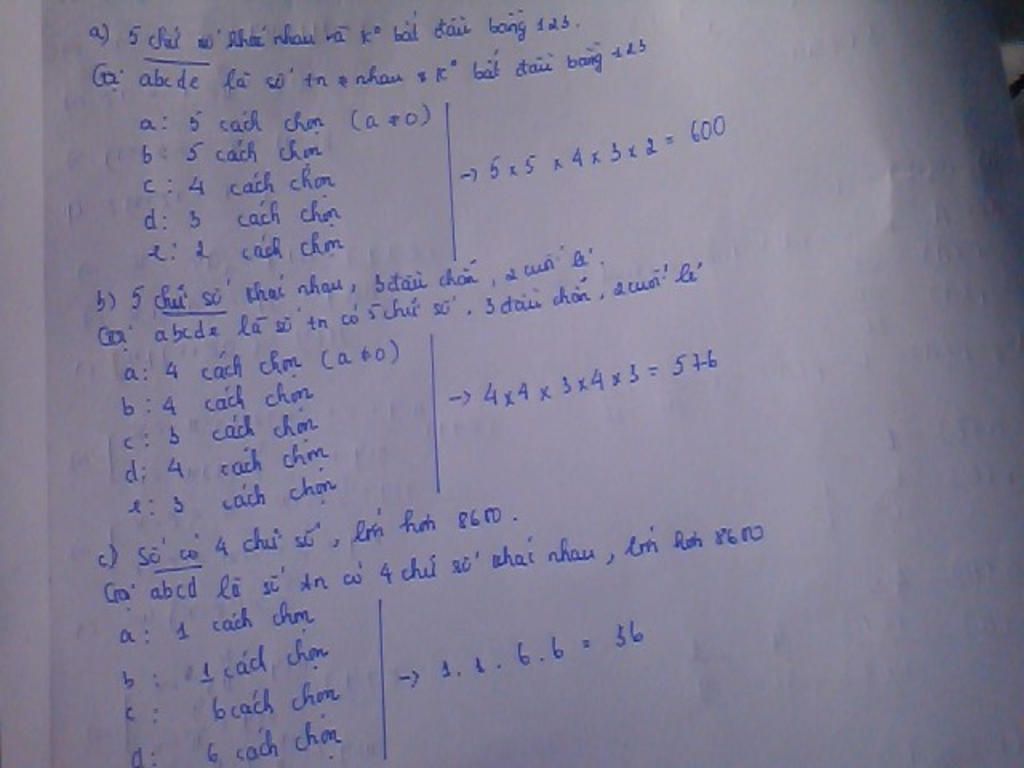 a) 5 chữ số khác nhau và k° bắt đầu bằng 123.
Gọi abcde là số tn ≠ nhau & k° bắt đầu bằng 123
a: 5 cách chọn (a ≠ 0)
b: 5 cách chọn
c: 4 cách chọn
d: 3 cách chọn
e: 2 cách chọn
→ 5 x 5 x 4 x 3 x 2 = 600
b) 5 chữ số khác nhau, 3 đầu chẵn, 2 cuối lẻ.
Gọi abcde là số tn có 5 chữ số, 3 đầu chẵn, 2 cuối lẻ
a: 4 cách chọn (a ≠ 0)
b: 4 cách chọn
c: 3 cách chọn
d: 4 cách chọn
e: 3 cách chọn
→ 4 x 4 x 3 x 4 x 3 = 576
c) Số có 4 chữ số, lớn hơn 8600.
Gọi abcd là số tn có 4 chữ số khác nhau, lớn hơn 8600
a: 1 cách chọn
b: 1 cách chọn
c: 6 cách chọn
d: 6 cách chọn
→ 1. 1. 6. 6 = 36